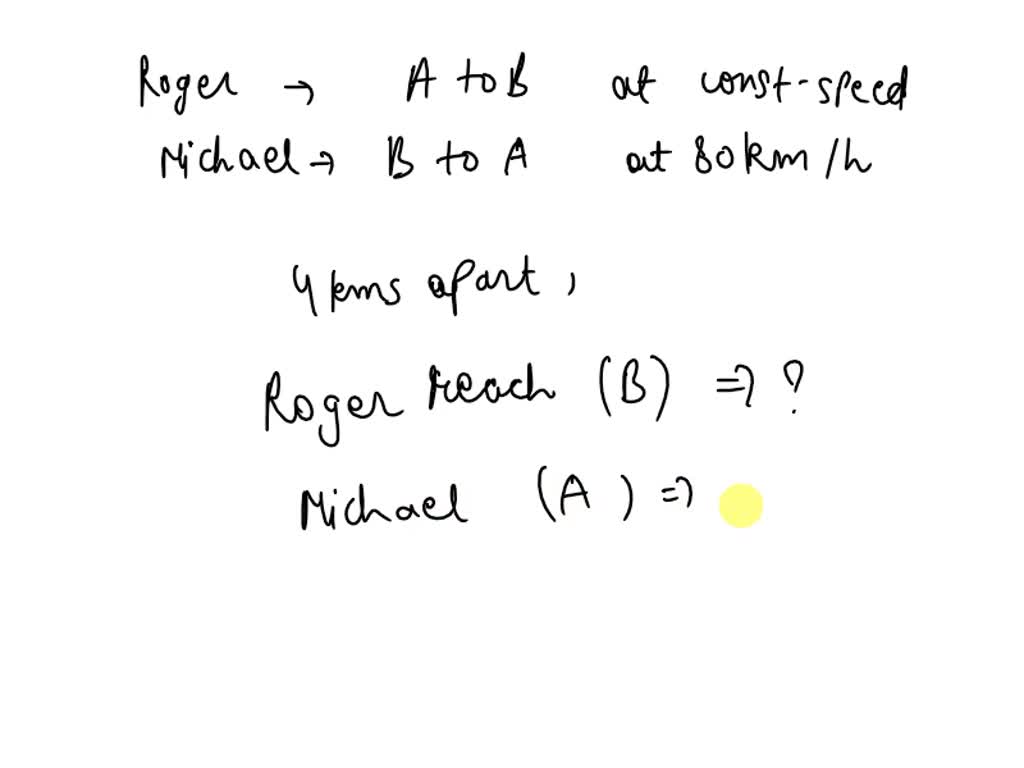 Roger → A to B at const-speed
Michael → B to A at 80km/h
4 kms apart,
Roger reach (B) => ?
Michael (A) =>